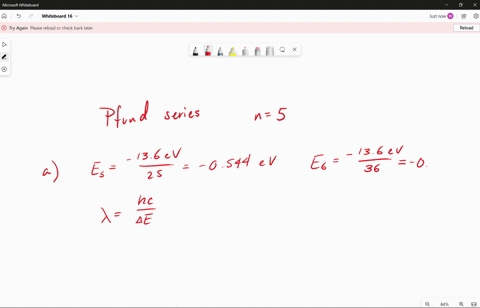 Microsoft Whiteboard
Whiteboard 16
Just now
Try Again Please reload or check back later.
Reload
Pfund series n = 5
a) E₅ = -13.6 eV / 25 = -0.544 eV E₆ = -13.6 eV / 36 = -0.
λ = hc / ΔE
64%